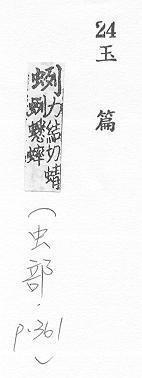 24
玉篇
蛚力結切蜻
蛚蟋蟀
(虫部·
p.361)